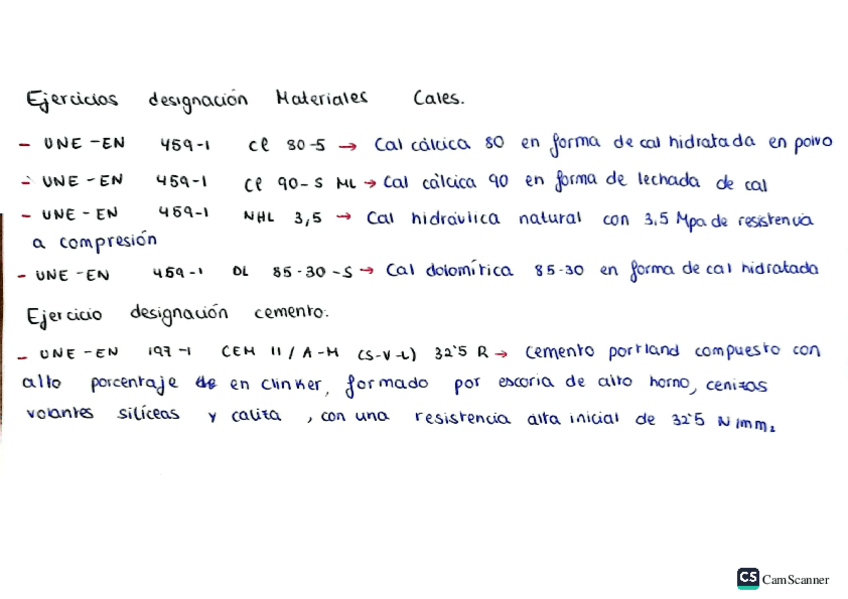 Ejercicios designación Materiales Cales.
- UNE-EN 459-1 Cl 80-S → Cal cálcica 80 en forma de cal hidratada en polvo
- UNE-EN 459-1 Cl 90-S ML → Cal cálcica 90 en forma de lechada de cal
- UNE-EN 459-1 NHL 3,5 → Cal hidráulica natural con 3,5 Mpa de resistencia
a compresión
- UNE-EN 459-1 DL 85-30-S → Cal dolomítica 85-30 en forma de cal hidratada
Ejercicio designación cemento:
- UNE-EN 197-1 CEM II/A-M (S-V-L) 32'5 R → Cemento portland compuesto con
alto porcentaje en clinker, formado por escoria de alto horno, cenizas
volantes silíceas y caliza, con una resistencia alta inicial de 32'5 N/mm2
CS CamScanner